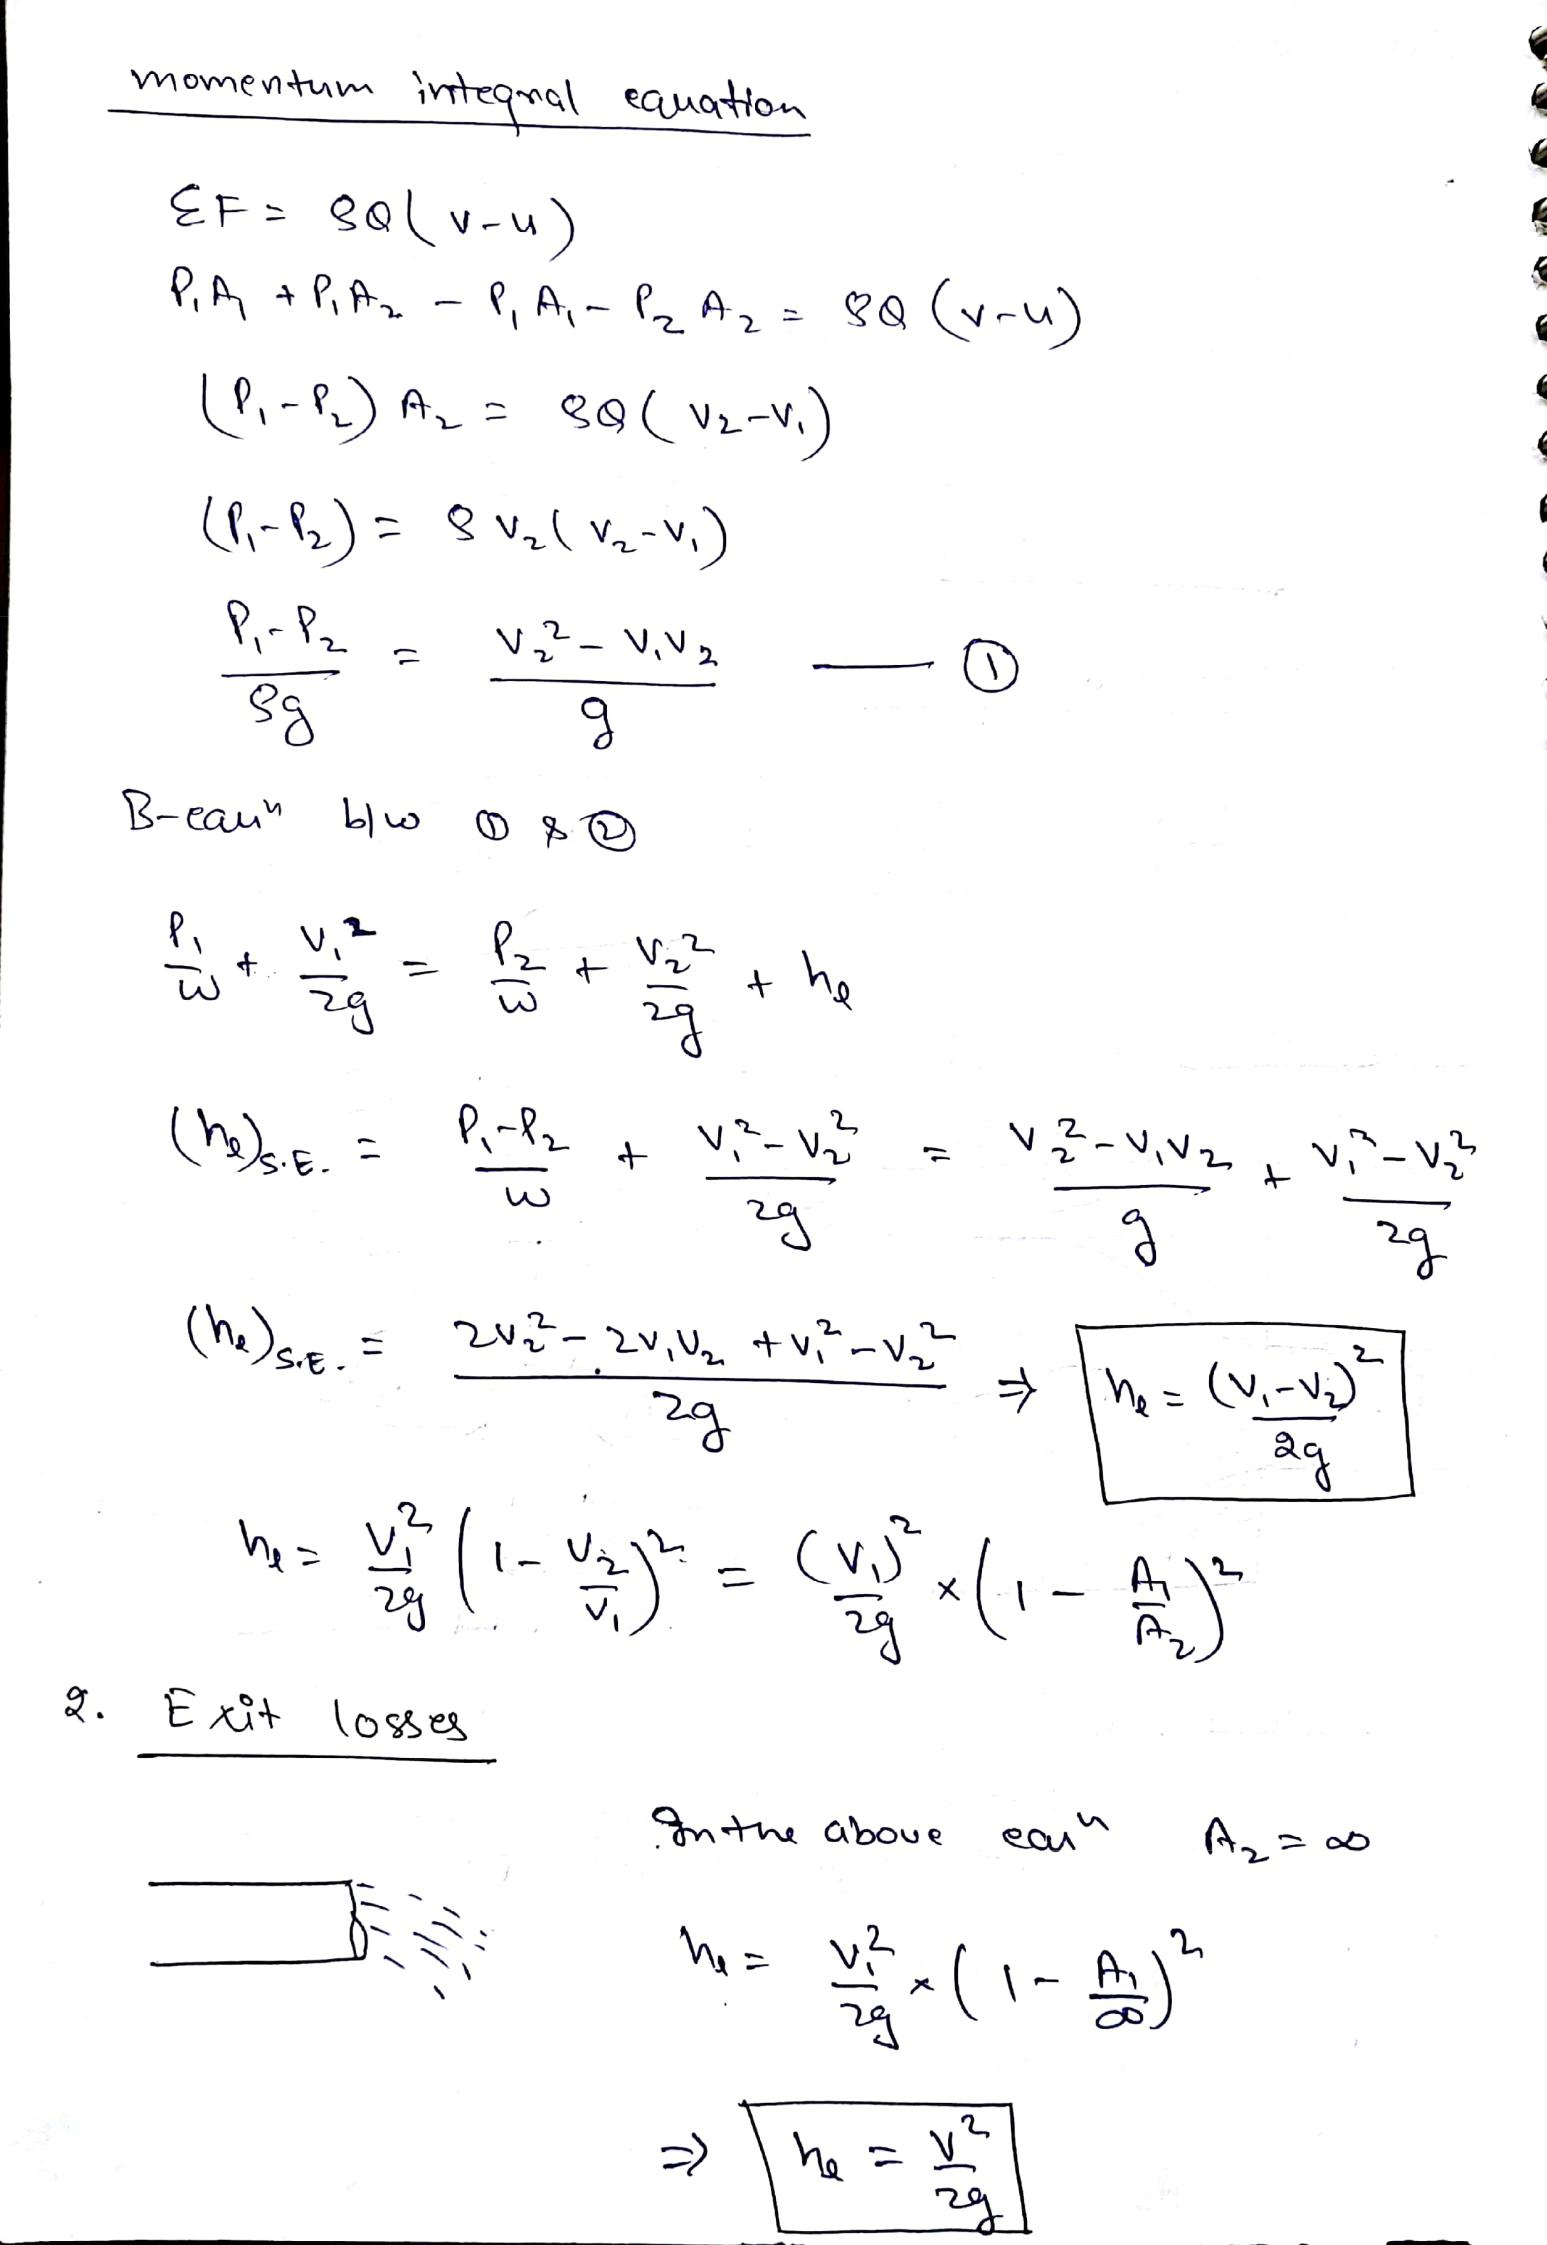 momentum integral equation
ΣF = ρQ(v-u)
P₁A₁ + P₁A₂ - P₁A₁ - P₂A₂ = ρQ(v-u)
(P₁-P₂)A₂ = ρQ(V₂-V₁)
(P₁-P₂) = ρV₂(V₂-V₁)
(P₁-P₂)/ρg = (V₂² - V₁V₂)/g —— ①
B-eqⁿ b/w ① & ②
P₁/w + V₁²/2g = P₂/w + V₂²/2g + hₑ
(hₑ)S.E. = (P₁-P₂)/w + (V₁²-V₂²)/2g = (V₂²-V₁V₂)/g + (V₁²-V₂²)/2g
(hₑ)S.E. = (2V₂² - 2V₁V₂ + V₁² - V₂²)/2g ⇒ hₑ = (V₁-V₂)²/2g
hₑ = V₁²/2g (1 - V₂/V₁)² = (V₁)²/2g × (1 - A₁/A₂)²
2. Exit losses
In the above eqⁿ A₂ = ∞
hₑ = V₁²/2g × (1 - A₁/∞)²
⇒ hₑ = V²/2g